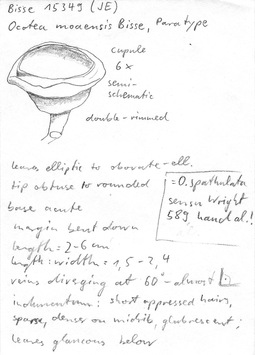 Bisse 15349 (JE)
Ocotea moaensis Bisse, Paratype
cupule
6 x
semi-
schematic
double-rimmed
leaves elliptic to obovate-ell.
tip obtuse to rounded
base acute
margin bent down
length = 2-6 cm
length : width = 1,5 - 2,4
veins diverging at 60°-almost
indumentum: short appressed hairs,
sparse, denser on midrib, glabrescent;
leaves glaucous below
= O. spathulata
sensu Wright
589 hand al.!